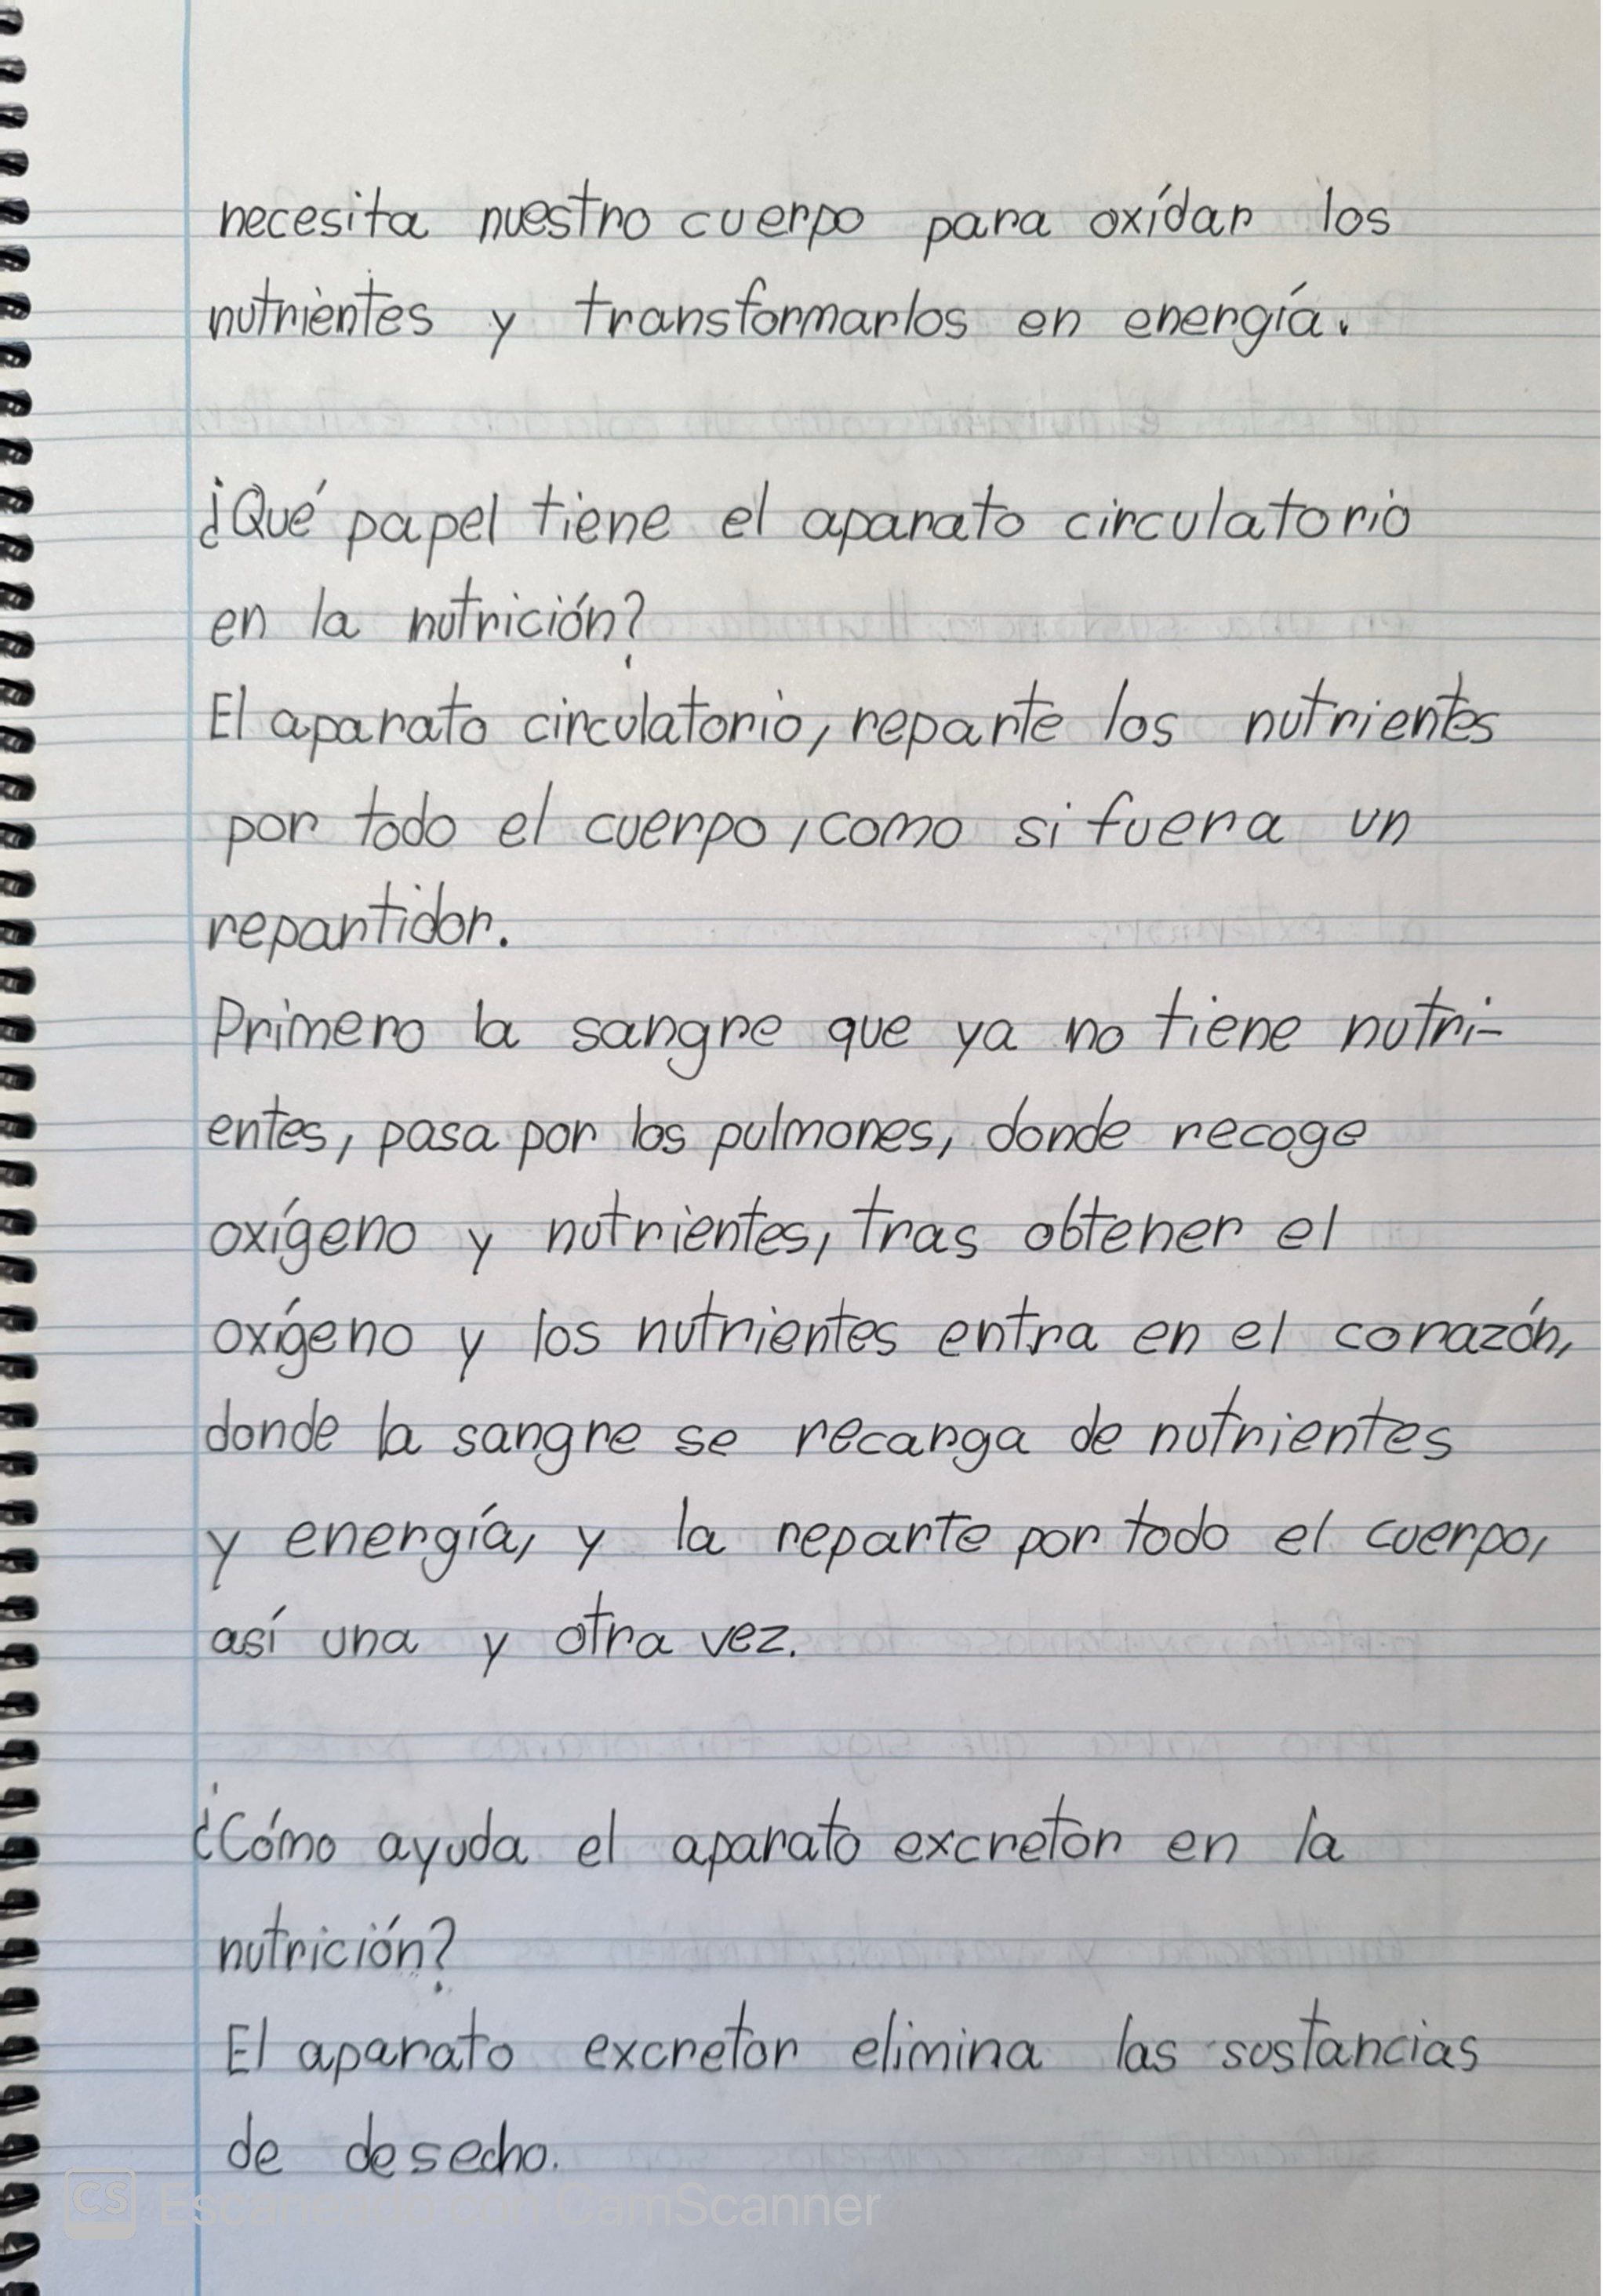 necesita nuestro cuerpo para oxídar los
nutrientes y transformarlos en energía.
¿Qué papel tiene el aparato circulatorio
en la nutrición?
El aparato circulatorio, reparte los nutrientes
por todo el cuerpo, como si fuera un
repartidor.
Primero la sangre que ya no tiene nutri-
entes, pasa por los pulmones, donde recoge
oxígeno y nutrientes, tras obtener el
oxígeno y los nutrientes entra en el corazón,
donde la sangre se recarga de nutrientes
y energía, y la reparte por todo el cuerpo,
así una y otra vez.
¿Cómo ayuda el aparato excretor en la
nutrición?
El aparato excretor elimina las sustancias
de desecho.
CS Escaneado con CamScanner